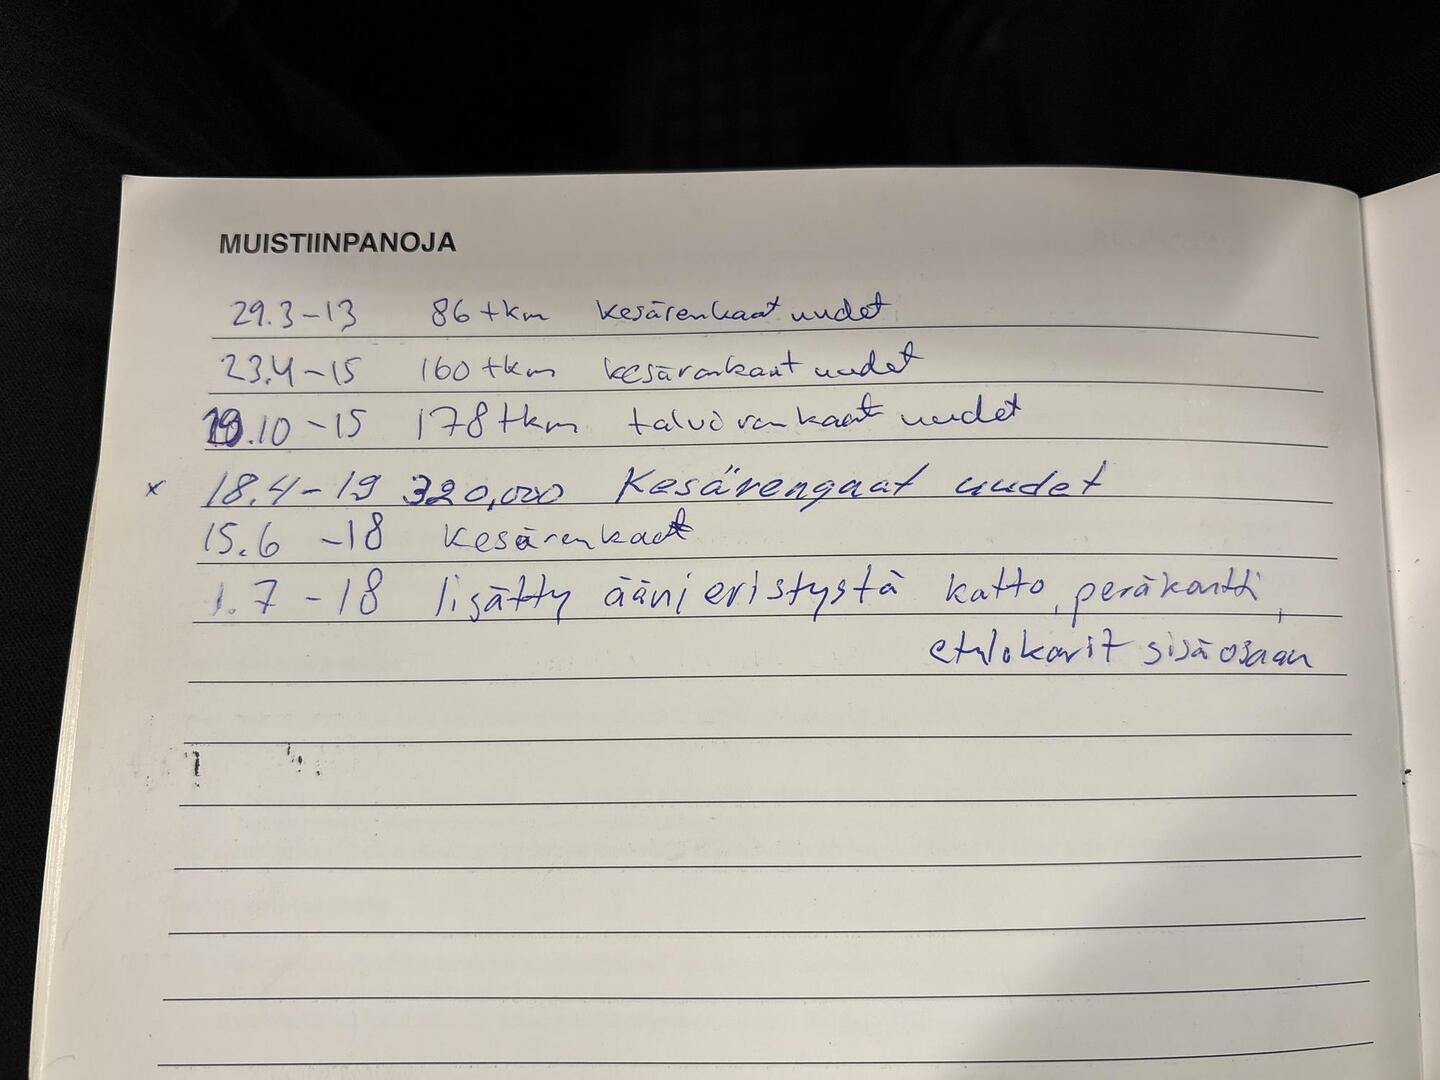 MUISTIINPANOJA
29.3-13 86 tkm kesärenkaat uudet
23.4-15 160 tkm kesärenkaat uudet
19.10-15 178 tkm talvirenkaat uudet
x 18.4-19 320,000 Kesärengaat uudet
15.6 -18 kesärenkaat
1.7-18 lisätty äänieristystä katto, peräkontti,
etulokarit sisäosaan